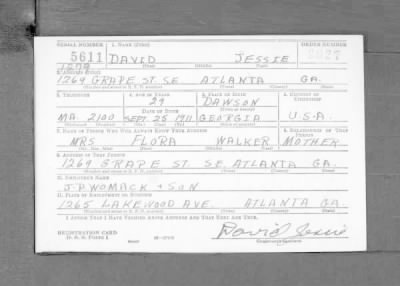 SERIAL NUMBER 1. NAME (Print) ORDER NUMBER
5611 DAVID JESSIE 2827
1278 (First) (Middle) (Last)
2. ADDRESS (Print)
1269 GRAPE ST. SE ATLANTA GA.
3. TELEPHONE 4. AGE IN YEARS 5. PLACE OF BIRTH 6. COUNTRY OF CITIZENSHIP
29 DAWSON
DATE OF BIRTH
MA. 2100 SEPT. 25 1911 GEORGIA U.S.A.
7. NAME OF PERSON WHO WILL ALWAYS KNOW YOUR ADDRESS 8. RELATIONSHIP OF THAT PERSON
MRS FLORA WALKER MOTHER
(Mr., Mrs., Miss) (First) (Middle) (Last)
9. ADDRESS OF THAT PERSON
1269 GRAPE ST. SE. ATLANTA GA.
10. EMPLOYER'S NAME
J.P. WOMACK + SON
11. PLACE OF EMPLOYMENT OR BUSINESS
1265 LAKEWOOD AVE. ATLANTA GA.
I AFFIRM THAT I HAVE VERIFIED ABOVE ANSWERS AND THAT THEY ARE TRUE.
REGISTRATION CARD
D. S. S. FORM 1
David Jessie
(Registrant's signature)